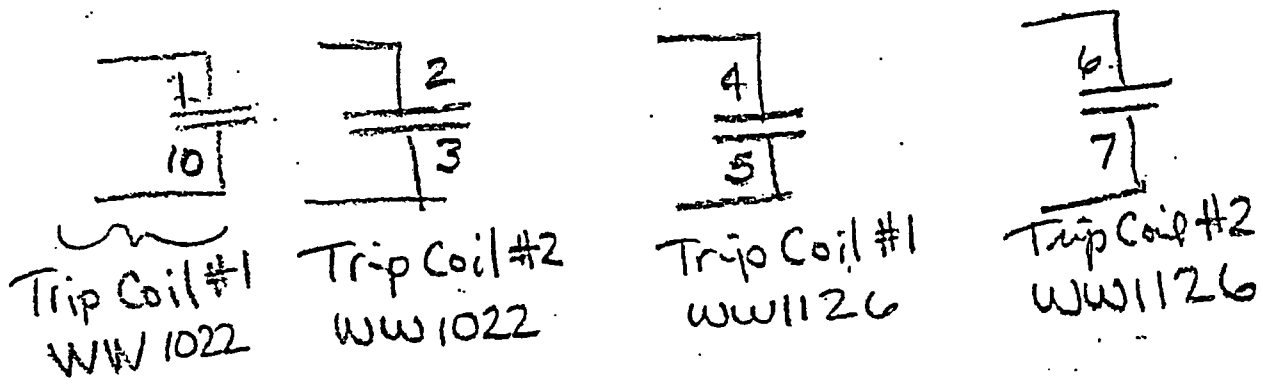 1
10
Trip Coil #1
WW 1022
2
3
Trip Coil #2
WW 1022
4
5
Trip Coil #1
WW1126
6
7
Trip Coil #2
WW1126